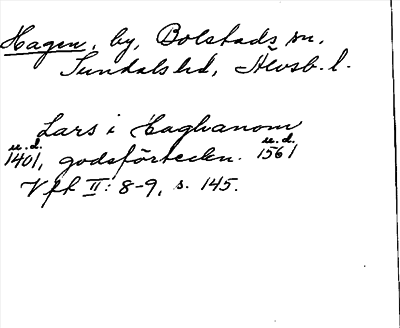 Hagen, by, Bolstads sn,
Sundals hd, Älvsb. l.
Lars i Haghanom
u.d. u.d.
1401, godsförteckn. 1561
Vfk II: 8-9, s. 145.